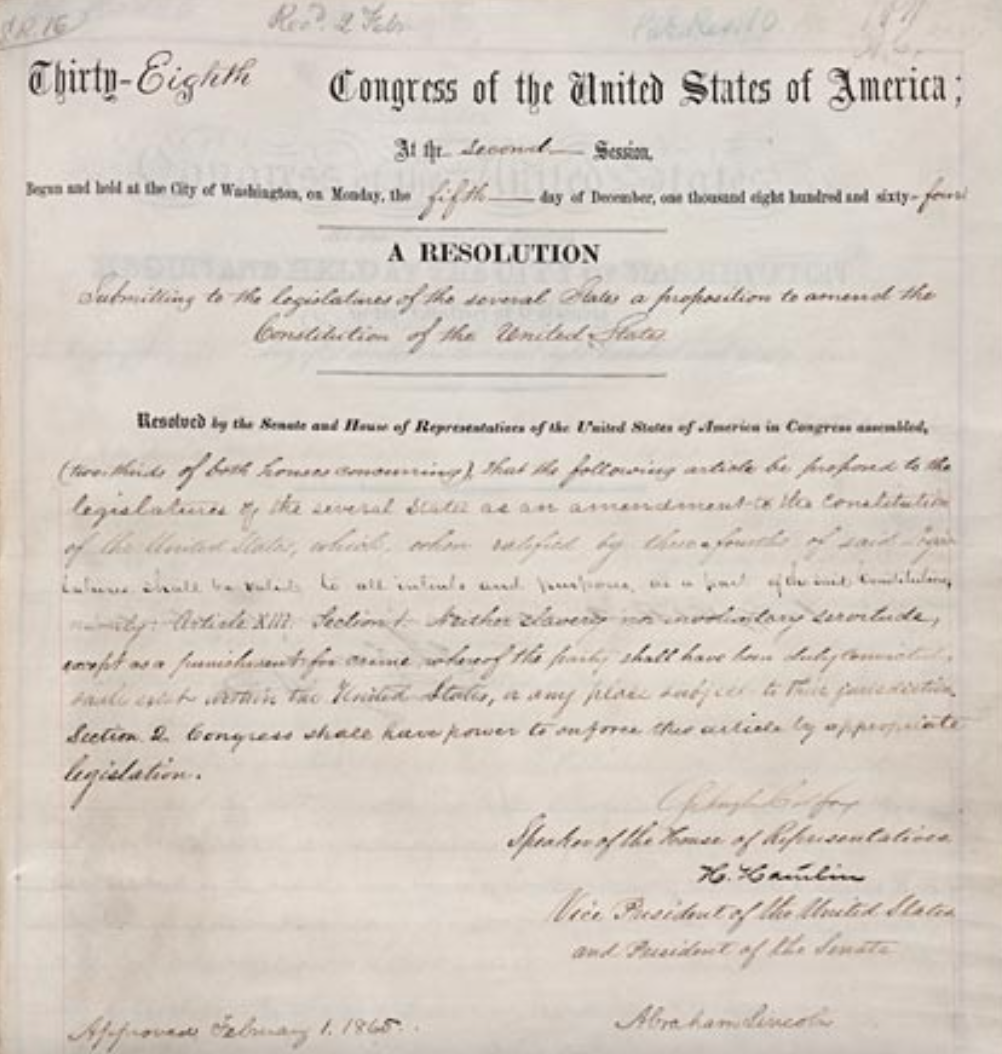 S.R. 16 Recd. 2 Feb.
Thirty-Eighth Congress of the United States of America;
At the second Session,
Begun and held at the City of Washington, on Monday, the fifth day of December, one thousand eight hundred and sixty-four
A RESOLUTION
Submitting to the legislatures of the several States a proposition to amend the
Constitution of the United States.
Resolved by the Senate and House of Representatives of the United States of America in Congress assembled,
(two-thirds of both houses concurring), that the following article be proposed to the
legislatures of the several States as an amendment to the Constitution
of the United States, which, when ratified by three-fourths of said legis-
latures shall be valid, to all intents and purposes, as a part of the said Constitution,
namely: Article XIII. Section 1. Neither slavery nor involuntary servitude,
except as a punishment for crime whereof the party shall have been duly convicted,
shall exist within the United States, or any place subject to their jurisdiction.
Section 2. Congress shall have power to enforce this article by appropriate
legislation.
Schuyler Colfax
Speaker of the House of Representatives
H. Hamlin
Vice President of the United States
and President of the Senate
Approved February 1. 1865. Abraham Lincoln